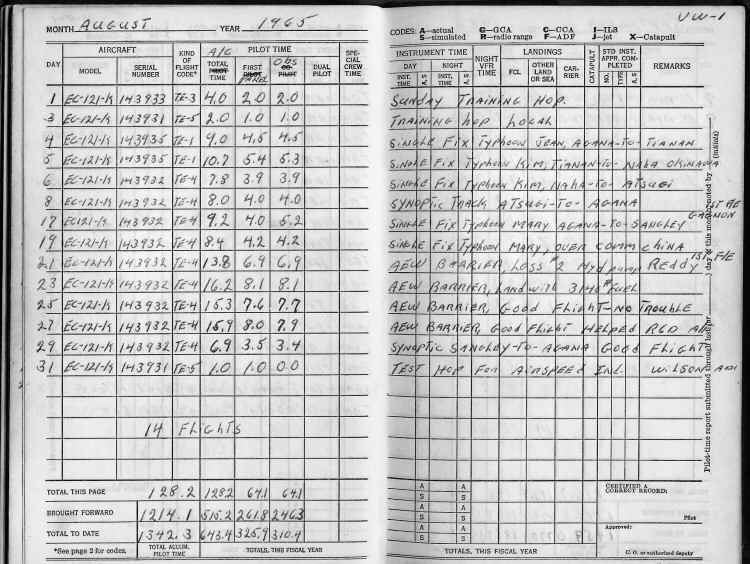 MONTH AUGUST YEAR 1965
AIRCRAFT KIND OF FLIGHT CODE* A/C PILOT TIME SPE-CIAL CREW TIME
DAY MODEL SERIAL NUMBER TOTAL PILOT TIME FIRST PILOT PANEL OBS CO-PILOT DUAL PILOT
1 EC-121-K 143933 TE-3 4.0 2.0 2.0
3 EC-121-K 143931 TE-5 2.0 1.0 1.0
4 EC-121-K 143935 TE-1 9.0 4.5 4.5
5 EC-121-K 143935 TE-1 10.7 5.4 5.3
6 EC-121-K 143932 TE-4 7.8 3.9 3.9
8 EC-121-K 143932 TE-4 8.0 4.0 4.0
17 EC121-K 143932 TE-4 9.2 4.0 5.2
19 EC-121-K 143932 TE-4 8.4 4.2 4.2
21 EC-121-K 143932 TE-4 13.8 6.9 6.9
23 EC-121-K 143932 TE-4 16.2 8.1 8.1
25 EC-121-K 143932 TE-4 15.3 7.6 7.7
27 EC-121-K 143932 TE-4 15.9 8.0 7.9
29 EC-121-K 143932 TE-4 6.9 3.5 3.4
31 EC-121-K 143931 TE-5 1.0 1.0 0.0
14 FLIGHTS
TOTAL THIS PAGE 128.2 128.2 64.1 64.1
BROUGHT FORWARD 1214.1 515.2 261.8 246.3
TOTAL TO DATE 1342.3 643.4 325.9 310.4
*See page 2 for codes. TOTAL ACCUM. PILOT TIME TOTALS, THIS FISCAL YEAR
VW-1
CODES: A—actual G—GCA C—CCA I—ILS
S—simulated R—radio range F—ADF J—jet X—Catapult
INSTRUMENT TIME NIGHT VFR TIME LANDINGS CATAPULT STD INST. APPR. COMPLETED REMARKS
DAY NIGHT FCL OTHER LAND OR SEA CARRIER NO. TYPE A S
INST. TIME A S INST. TIME A S
SUNDAY TRAINING HOP.
TRAINING HOP LOCAL
SINGLE FIX TYPHOON JEAN, AGANA-TO-TIANAN
SINGLE FIX TYPHOON KIM, TIANAN-TO-NAHA OKINAWA
SINGLE FIX TYPHOON KIM, NAHA-TO-ATSUGI
SYNOPTIC TRACK ATSUGI-TO-AGANA
SINGLE FIX TYPHOON MARY AGANA-TO-SANGLEY
SINGLE FIX TYPHOON MARY, OVER COMM CHINA
AEW BARRIER, LESS #2 HYD PUMP REDDY 1ST F/E
AEW BARRIER, LAND WITH 3140 # FUEL
AEW BARRIER, GOOD FLIGHT-NO TROUBLE
AEW BARRIER, GOOD FLIGHT HELPED
SYNOPTIC SANGLEY-TO-AGANA GOOD FLIGHT
TEST HOP FOR AIRSPEED IND. WILSON
A CERTIFIED A CORRECT RECORD:
S
A Pilot
S
A Approved:
S
TOTALS, THIS FISCAL YEAR C. O. or authorized deputy
Pilot-time report submitted through hot(pr day of this month noted by (initials)